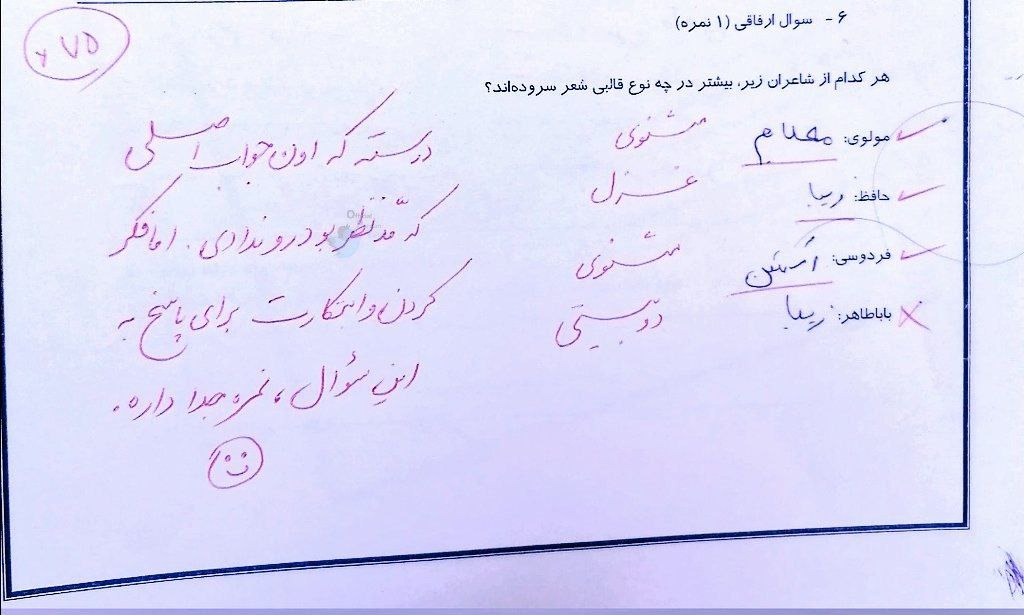 ۶ - سوال ارفاقی (۱ نمره)
هر کدام از شاعران زیر، بیشتر در چه نوع قالبی شعر سروده‌اند؟
مولوی: مثنوی
حافظ: زیبا غزل
فردوسی: مثنوی
باباطاهر: زیبا دوبیتی
۷۵
درسته که اون جواب اصلی
که مدّنظر بود رو ندادی. اما فکر
کردن و ابتکارت برای پاسخ به
این سؤال، نمره جدا داره.